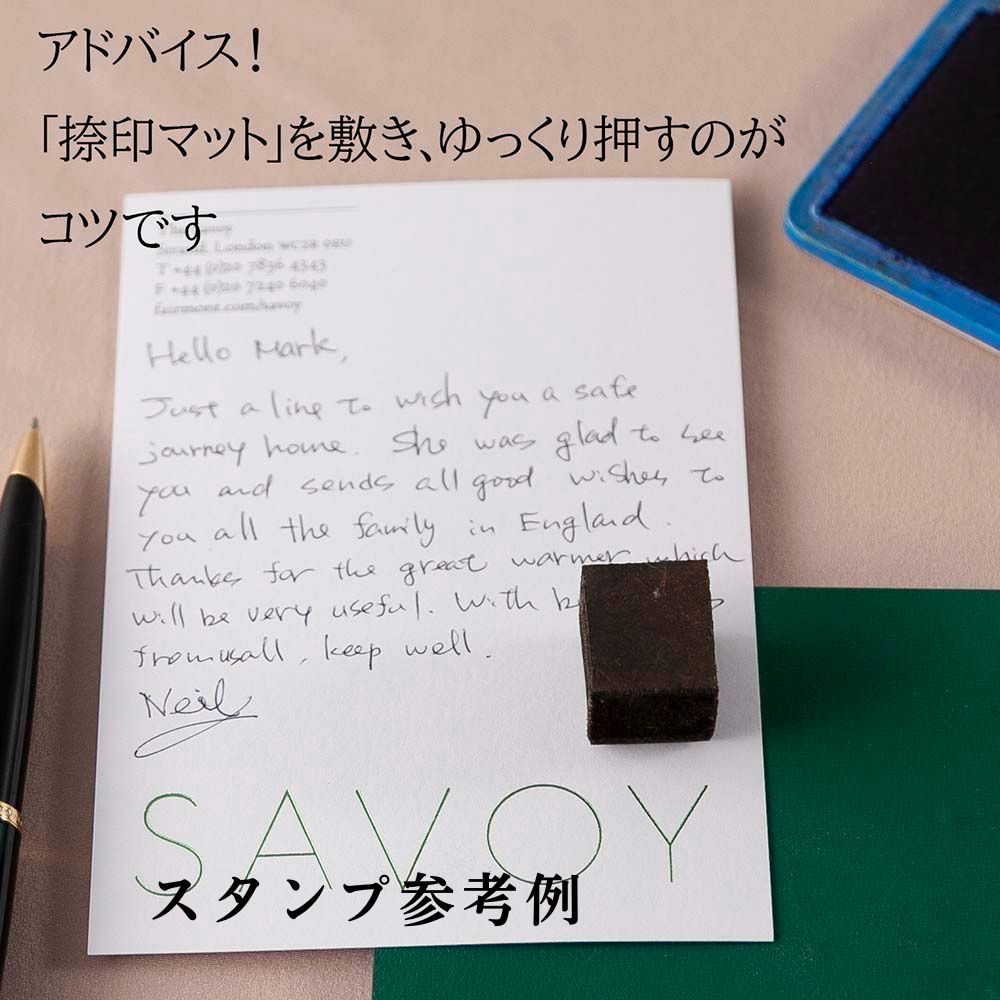 アドバイス！
「捺印マット」を敷き、ゆっくり押すのが
コツです
London WC2R 0EU
T +44 (0)20 7836 4343
F +44 (0)20 7240 6040
fairmont.com/savoy
Hello Mark,
Just a line to wish you a safe
journey home. She was glad to see
you and sends all good wishes to
you all the family in England.
Thanks for the great warmer which
will be very useful. With
from us all, keep well.
Neil
SAVOY
スタンプ参考例